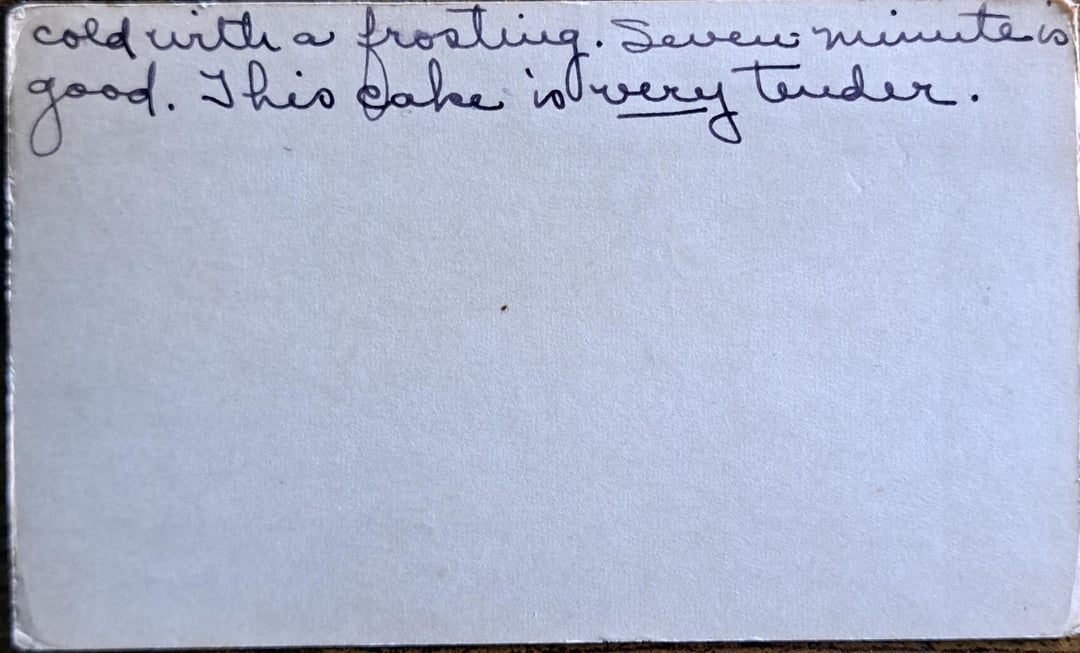 cold with a frosting. Seven minute is
good. This cake is very tender.